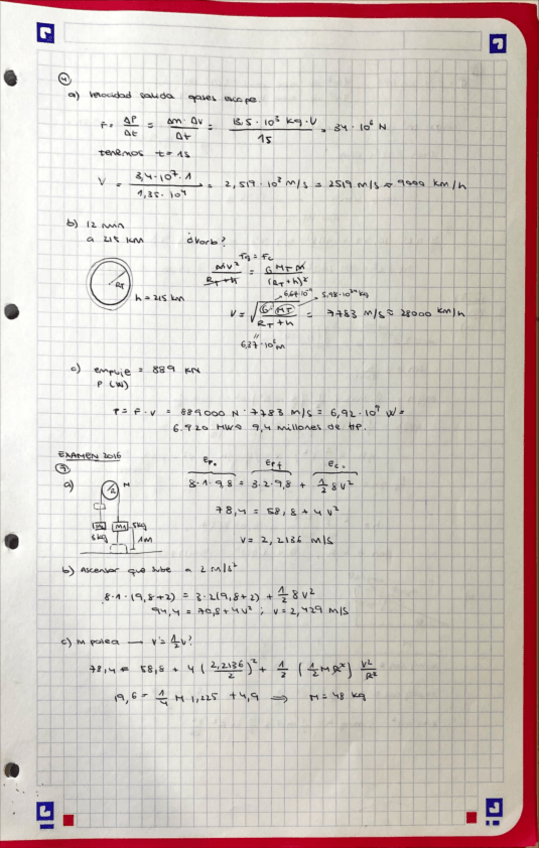 4
a) Velocidad salida gases escape.
F = ΔP/Δt = Δm·Δv/Δt = 13,5·10³ kg·V/1s = 34·10⁶ N
tenemos t = 1s
V = 3,4·10⁷·1/1,35·10⁴ = 2,519·10³ m/s = 2519 m/s ≈ 9000 km/h
b) 12 min
a 215 km ¿Vorb?
Fg = Fc
RT
h = 215 km
mv²/RT+h = G MT m/(RT+h)²
6,67·10⁻¹¹ 5,98·10²⁴ kg
V = √(G·MT/RT+h) = 7783 m/s ≈ 28000 km/h
6,37·10⁶ m
c) empuje = 889 kN
P (W)
P = F·V = 889000 N · 7783 m/s = 6,92·10⁹ W =
6.920 MW ≈ 9,4 millones de HP.
EXAMEN 2016
7
a)
M
5kg
3kg
1m
ep₀ epf ec.
8·1·9,8 = 3·2·9,8 + ½ 8v²
78,4 = 58,8 + 4v²
V = 2,2136 m/s
b) Ascensor que sube a 2 m/s²
8·1·(9,8+2) = 3·2(9,8+2) + ½ 8v²
94,4 = 70,8 + 4v² ; v = 2,429 m/s
c) M polea → v' = ½v?
78,4 = 58,8 + 4(2,2136/2)² + ½ (½MR²) v²/R²
19,6 = ¼ M 1,225 + 4,9 ⟹ M = 48 kg